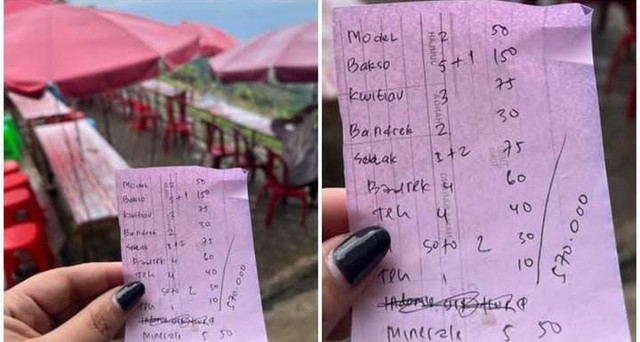 Model 2 50
Bakso 5+1 150
Kwitiau 3 75
Bandrek 2 30
Seblak 3+2 75
Bandrek 4 60
Teh 4 40
Soto 2 30
Teh 1 10
570.000
Minerale 5 50
Model 2 50
Bakso 5+1 150
Kwitiau 3 75
Bandrek 2 30
Seblak 3+2 75
Bandrek 4 60
Teh 4 40
Soto 2 30
Teh 1 10
570.000
Minerale 5 50